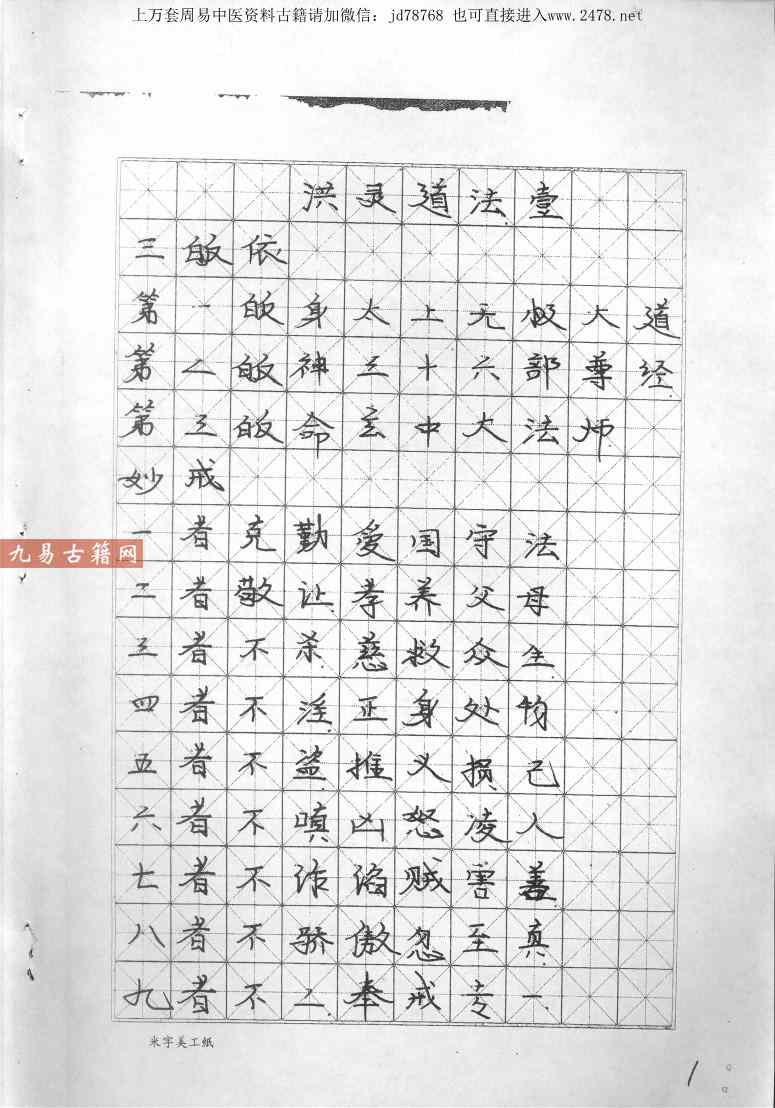 上万套周易中医资料古籍请加微信：jd78768 也可直接进入www.2478.net
洪灵道法壹
三皈依
第一皈身太上无极大道
第二皈神三十六部尊经
第三皈命玄中大法师
妙戒
一者克勤爱国守法
二者敬让孝养父母
三者不杀慈救众生
四者不淫正身处物
五者不盗推义损己
六者不嗔凶怒凌人
七者不诈谄贼害善
八者不骄傲忽至真
九者不二奉戒专一
九易古籍网
米字美工纸
1